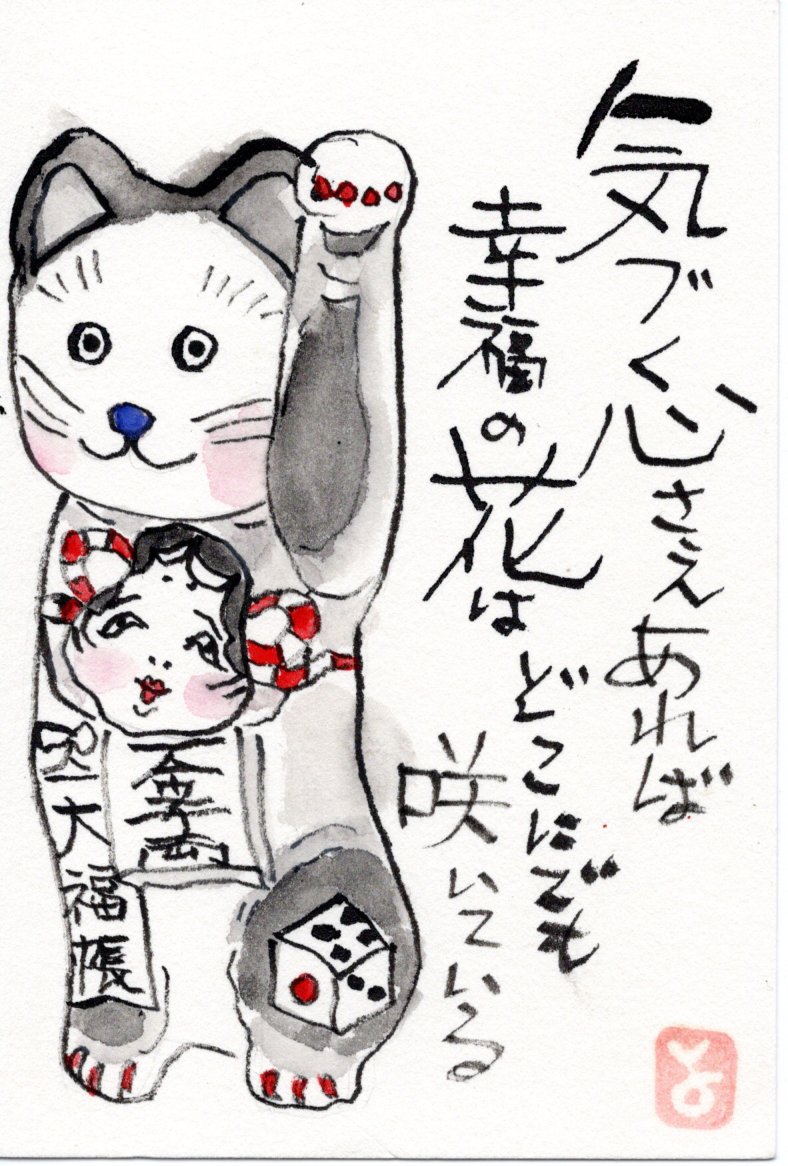 気づく心さえあれば
幸福の花は
どこにでも
咲いている
大福帳
よ